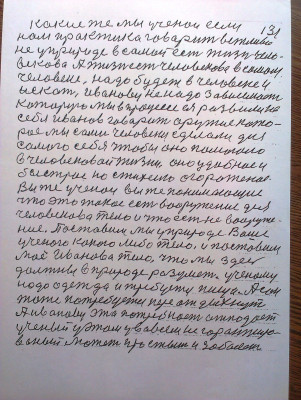 131
Какие же мы ученои если
нам практика говарит вежливо
не уприроде в самом ест жизн чело-
векова А жизнест человекова в самом
человеке, надо будет в человеке и
искат, Иванову не надо завидоват
которую мы в процессе развили на
себя Иванов говарит оружие кото-
рое мы сами человеки сделали для
самого себя чтобы оно помогало
в человековай жизни, оно удобное и
быстрое но стижело огороженое.
Вы же ученои вы же понимающие
что это такое ест вооружение для
человекова тело и что ест не вооруже-
ние. Поставим мы уприроде Ваше
ученого какого либо тело, и поставим
мое Иванова тело, что мы здес
должны в природе разумет. ученому
надо одежда и требует пища. А он
тоже потребует
А Иванову эта потребност отпадает
ученый у этом увсем не гарантиро-
ваный может простыт и заболет